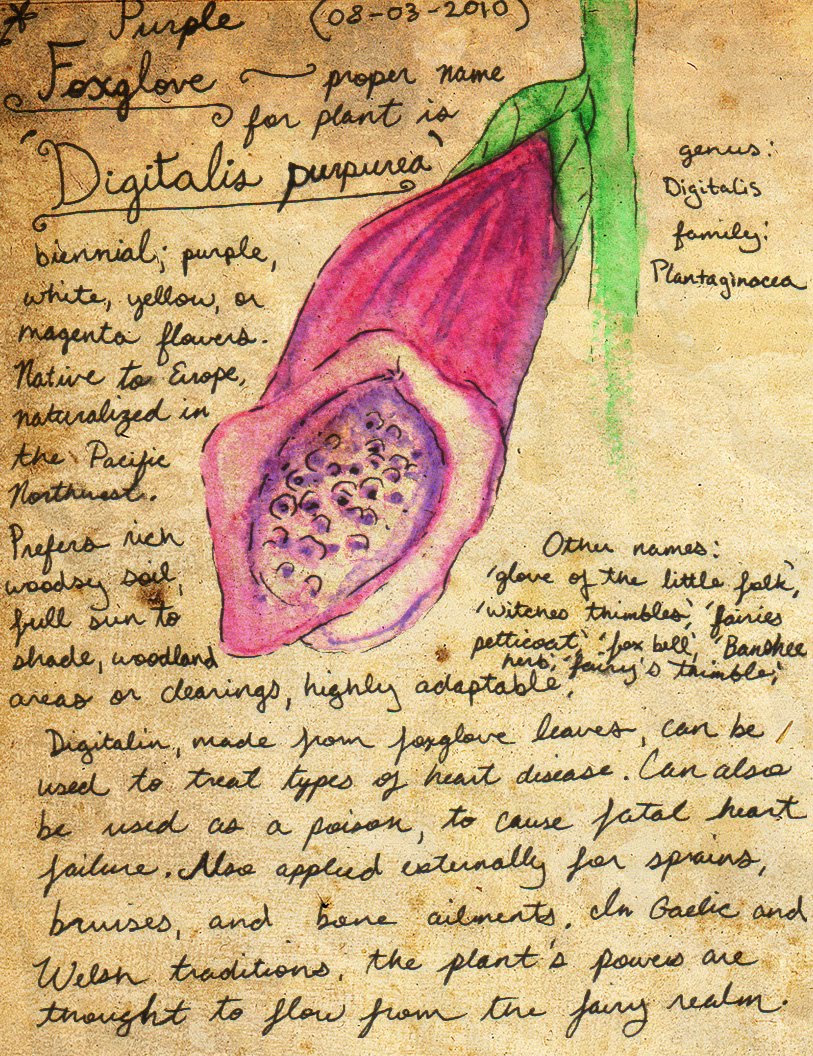 * Purple (08-03-2010)
Foxglove — proper name
for plant is
'Digitalis purpurea'
genus:
Digitalis
family:
Plantaginacea
biennial; purple,
white, yellow, or
magenta flowers.
Native to Europe,
naturalized in
the Pacific
Northwest.
Prefers rich
woodsy soil,
full sun to
shade, woodland
areas or clearings, highly adaptable.
Other names:
'glove of the little folk',
'witches thimbles', 'fairies
petticoat', 'fox bell', 'Banshee
herb', 'fairy's thimble',
Digitalin, made from foxglove leaves, can be
used to treat types of heart disease. Can also
be used as a poison, to cause fatal heart
failure. Also applied externally for sprains,
bruises, and bone ailments. In Gaelic and
Welsh traditions, the plant's powers are
thought to flow from the fairy realm.